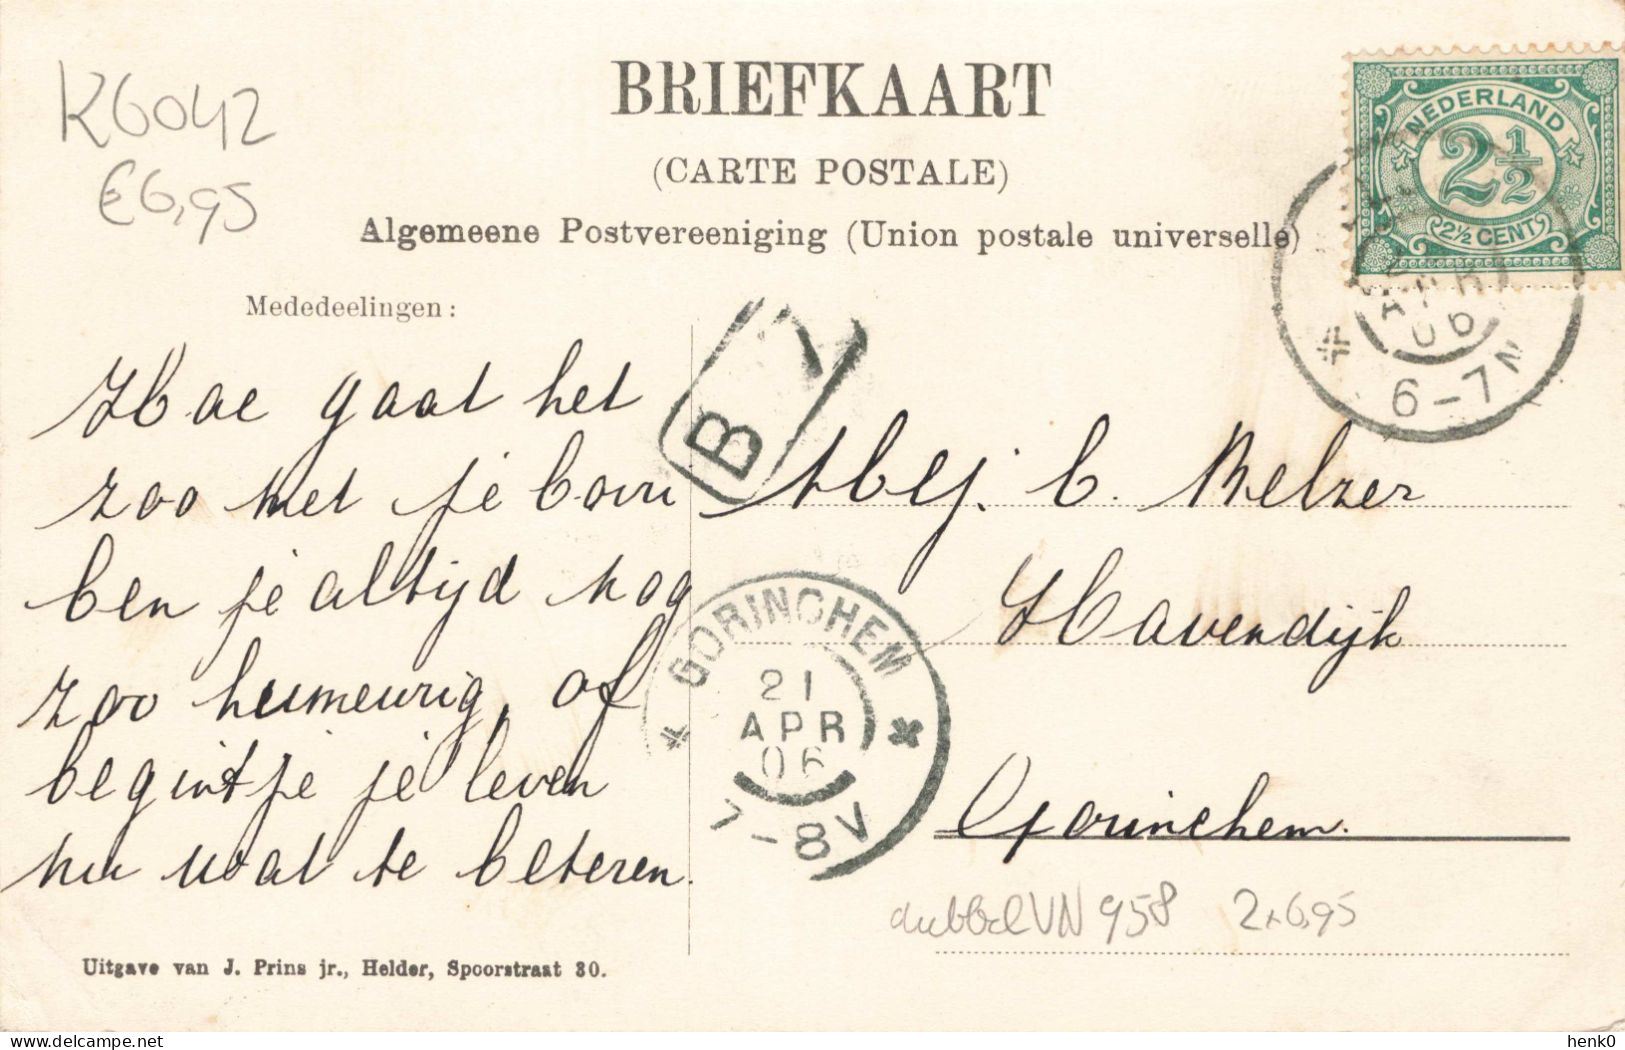 K6042
€6,95
BRIEFKAART
(CARTE POSTALE)
Algemeene Postvereeniging (Union postale universelle)
NEDERLAND
2½
2½ CENT
APR
06
6-7N
Mededeelingen:
Hoe gaat het
zoo met je
ben je altijd nog
zoo humeurig, of
begint je je leven
nu wat te beteren.
B
Mej. C. Melzer
Havendijk
Gorinchem.
GORINCHEM
21
APR
06
7-8V
dubbel VN 958 2x6,95
Uitgave van J. Prins jr., Helder, Spoorstraat 30.
henk0